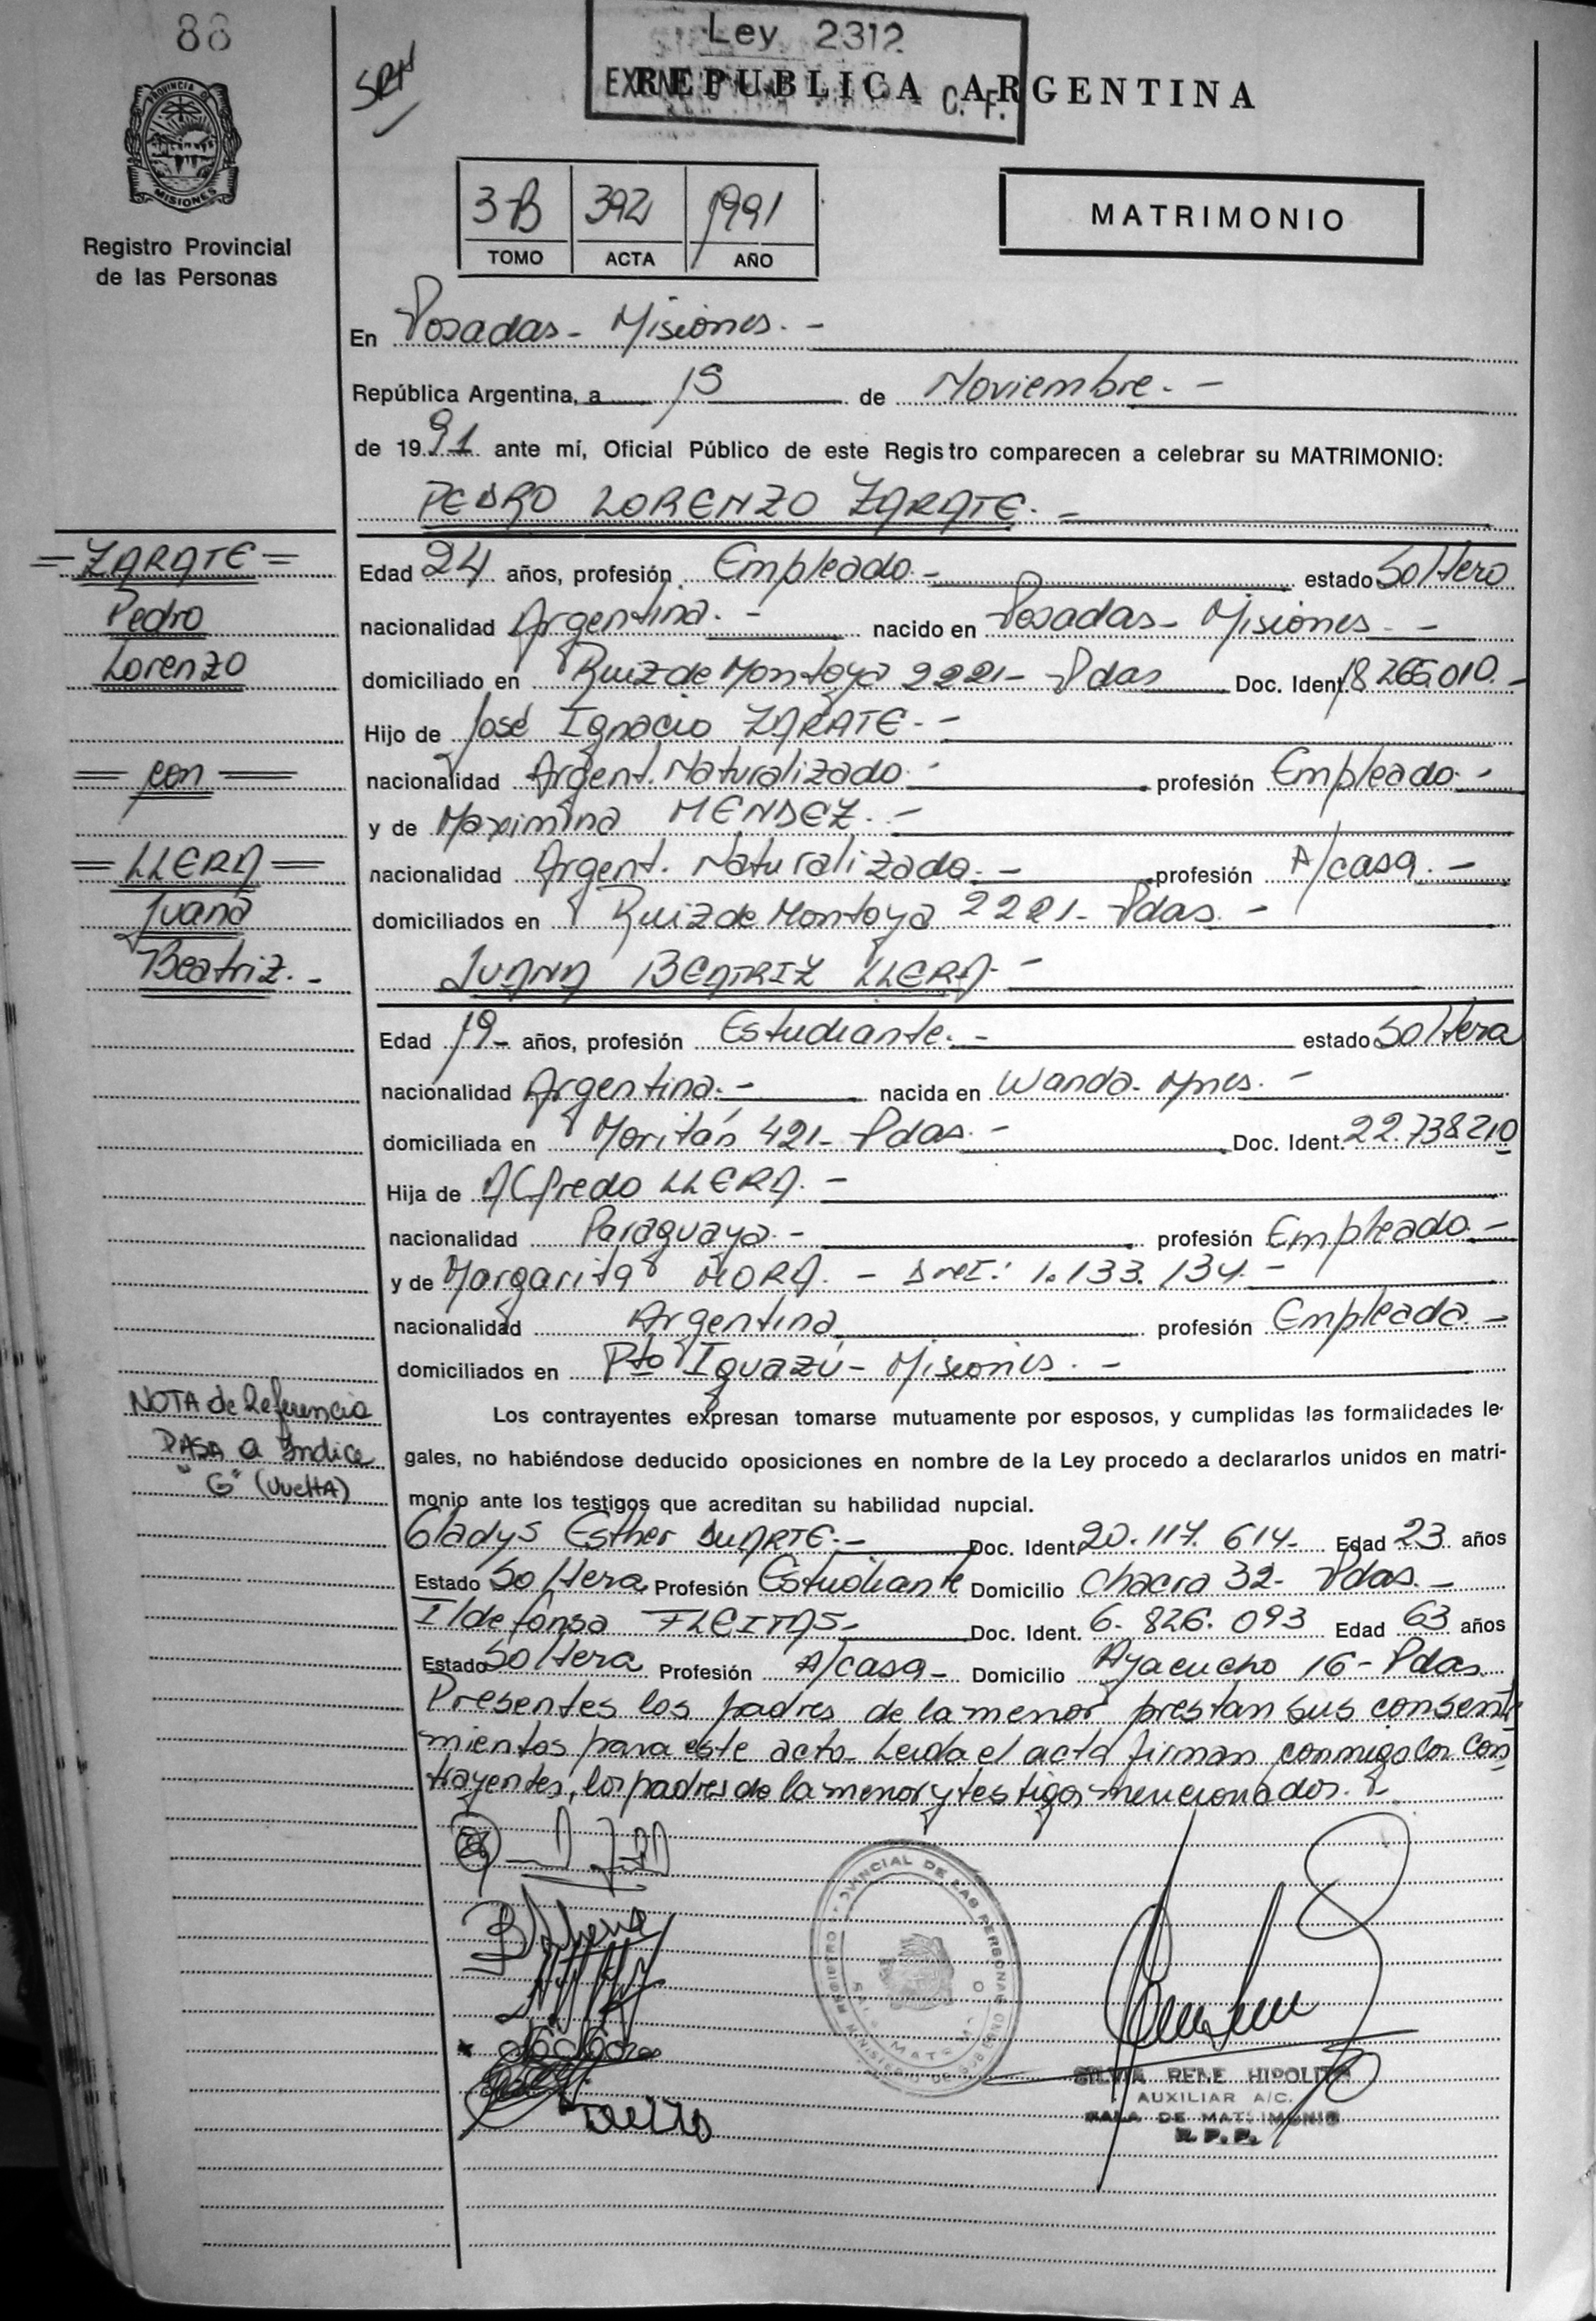 88
Ley 2312
SRH
REPUBLICA ARGENTINA
C. F.
PROVINCIA D
MISIONES
Registro Provincial
de las Personas
3-B 392 1991
TOMO ACTA AÑO
MATRIMONIO
En Posadas - Misiones. -
República Argentina, a 15 de Noviembre. -
de 1991 ante mí, Oficial Público de este Registro comparecen a celebrar su MATRIMONIO:
PEDRO LORENZO ZARATE. -
= ZARATE =
Pedro
Lorenzo
= con =
= LLERA =
Juana
Beatriz. -
Edad 24 años, profesión Empleado - estado Soltero
nacionalidad Argentina. - nacido en Posadas - Misiones -
domiciliado en Ruiz de Montoya 2221 - Pdas Doc. Ident. 18.266.010. -
Hijo de José Ignacio ZARATE. -
nacionalidad Argent. Naturalizado. - profesión Empleado. -
y de Maximina MENDEZ. -
nacionalidad Argent. Naturalizada. - profesión A/casa. -
domiciliados en Ruiz de Montoya 2221 - Pdas. -
JUANA BEATRIZ LLERA. -
Edad 19 - años, profesión Estudiante. - estado Soltera
nacionalidad Argentina. - nacida en Wanda - Mnes. -
domiciliada en Moritán 421 - Pdas. - Doc. Ident. 22.738.210
Hija de Alfredo LLERA. -
nacionalidad Paraguaya. - profesión Empleado. -
y de Margarita MORA. - 1.133.134. -
nacionalidad Argentina profesión Empleada -
domiciliados en Pto Iguazú - Misiones. -
NOTA de Referencia
PASA a Indice
"G" (VueltA)
Los contrayentes expresan tomarse mutuamente por esposos, y cumplidas las formalidades le-
gales, no habiéndose deducido oposiciones en nombre de la Ley procedo a declararlos unidos en matri-
monio ante los testigos que acreditan su habilidad nupcial.
Gladys Esther DUARTE. - Doc. Ident. 20.117.614 - Edad 23 años
Estado Soltera Profesión Estudiante Domicilio Chacra 32 - Pdas. -
Ildefonsa FLEITAS - Doc. Ident. 6.826.093 Edad 63 años
Estado Soltera Profesión A/casa - Domicilio Ayacucho 16 - Pdas.
Presentes los padres de la menor prestan sus consenti
mientos para este acto - Leida el acta firman conmigo los con
trayentes, los padres de la menor y testigos mencionados. -
REGISTRO PROVINCIAL DE LAS PERSONAS
SILVIA RENE HIPOLITO
AUXILIAR A/C.
SALA DE MATRIMONIO
R. P. P.